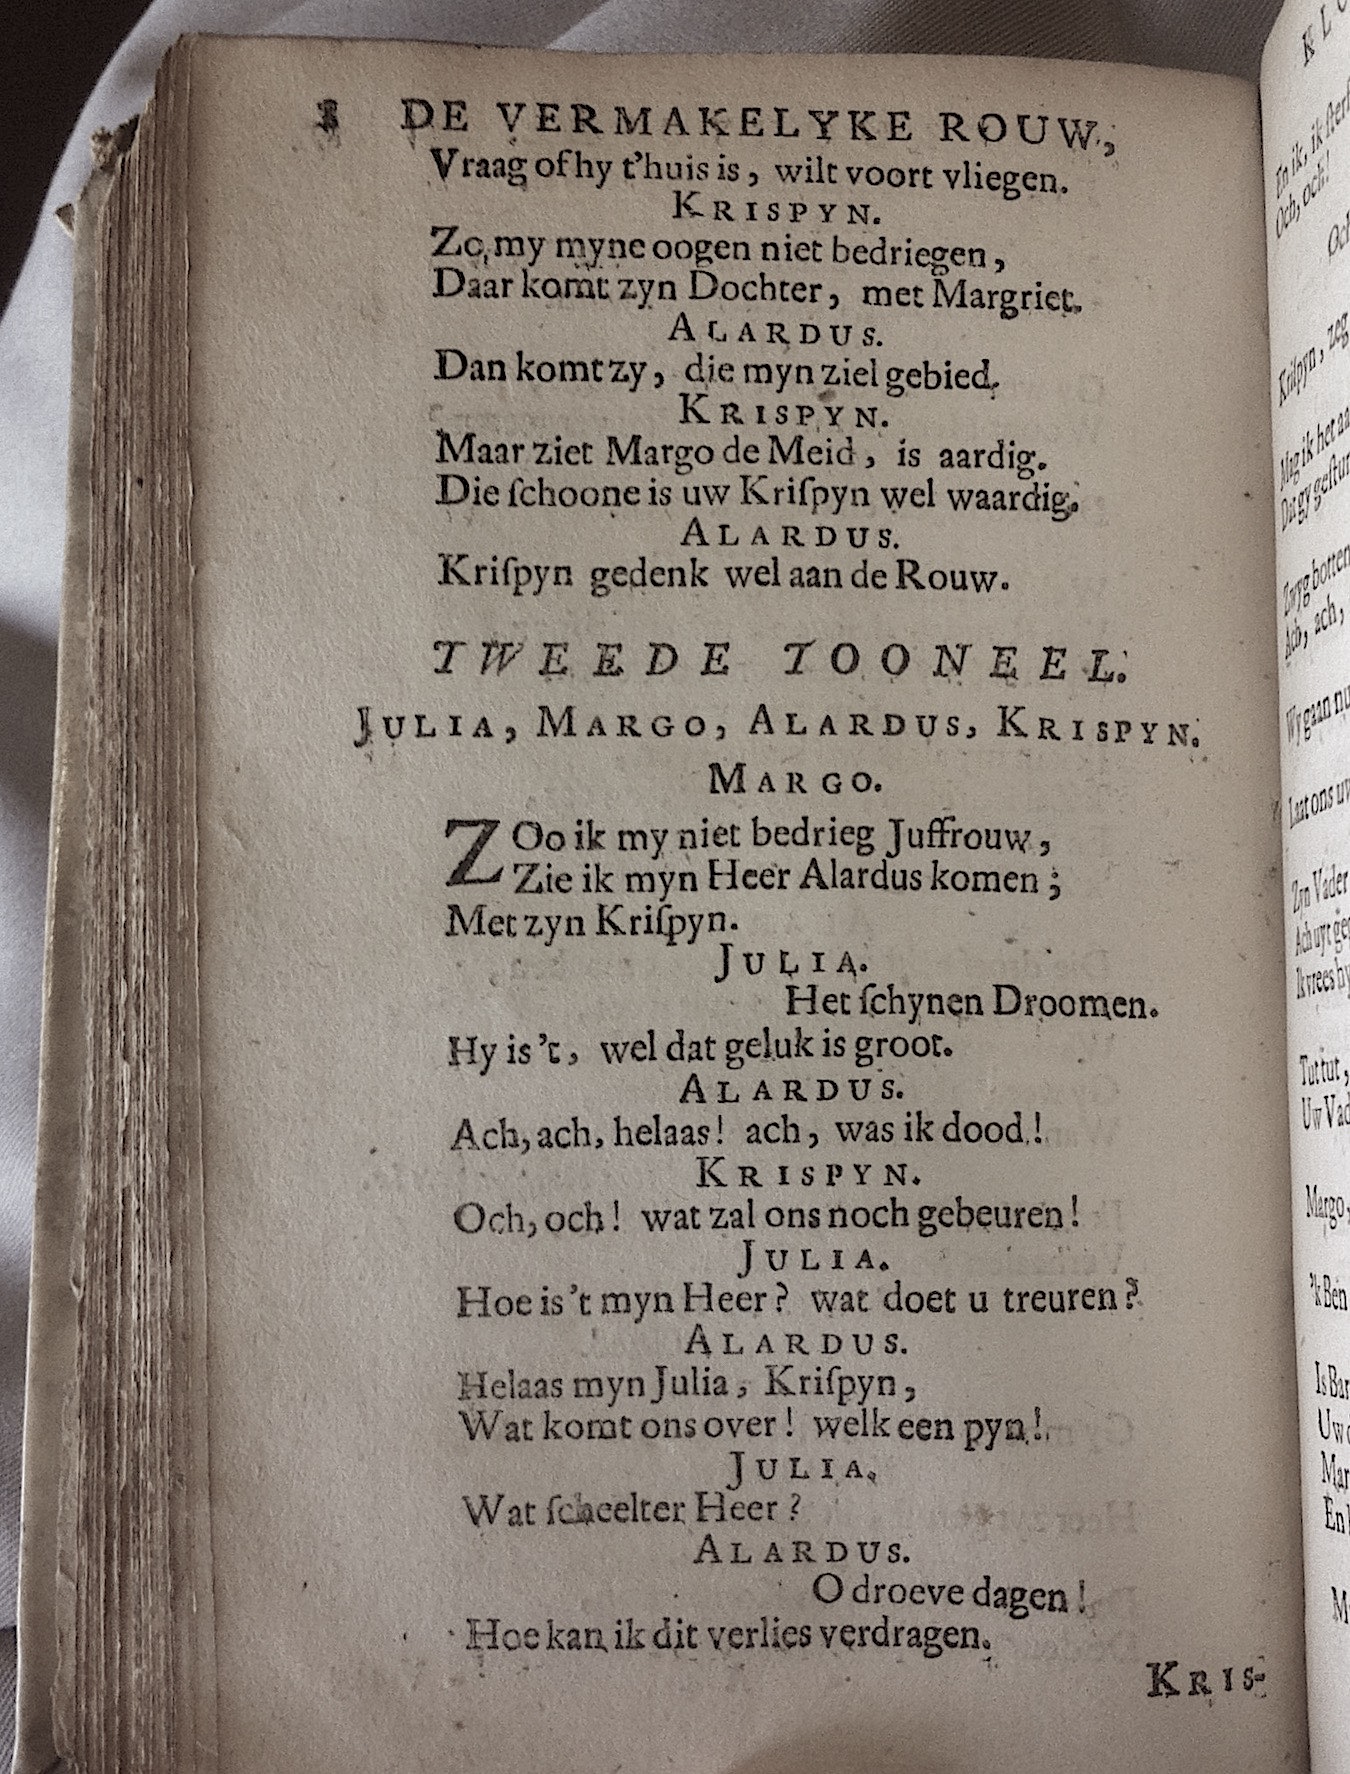 8 DE VERMAKELYKE ROUW,
Vraag of hy t'huis is, wilt voort vliegen.
KRISPYN.
Zo, my myne oogen niet bedriegen,
Daar komt zyn Dochter, met Margriet.
ALARDUS.
Dan komt zy, die myn ziel gebied.
KRISPYN.
Maar ziet Margo de Meid, is aardig.
Die ſchoone is uw Kriſpyn wel waardig.
ALARDUS.
Kriſpyn gedenk wel aan de Rouw.
TWEEDE TOONEEL.
JULIA, MARGO, ALARDUS, KRISPYN.
MARGO.
ZOo ik my niet bedrieg Juffrouw,
Zie ik myn Heer Alardus komen;
Met zyn Kriſpyn.
JULIA.
Het ſchynen Droomen.
Hy is 't, wel dat geluk is groot.
ALARDUS.
Ach, ach, helaas! ach, was ik dood!
KRISPYN.
Och, och! wat zal ons noch gebeuren!
JULIA.
Hoe is 't myn Heer? wat doet u treuren?
ALARDUS.
Helaas myn Julia, Kriſpyn,
Wat komt ons over! welk een pyn!
JULIA.
Wat ſcheelter Heer?
ALARDUS.
O droeve dagen!
Hoe kan ik dit verlies verdragen.
KRIS-
En ik, ik
Och, och!
Kriſpyn, zeg
Mag ik het
Dat gy
Zwyg
Ach, ach,
Wy gaan
Laat ons
Zyn Vader
Ach uyt
Ik vrees hy
Tut tut,
Uw
Margo,
'k Ben
Is
Uw